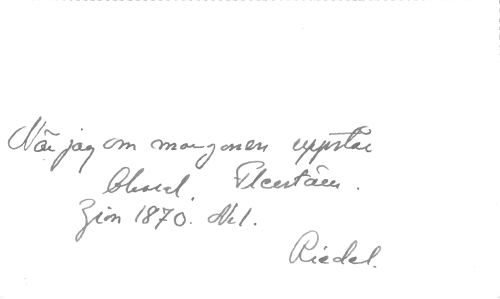 När jag om morgonen uppstår
Choral. Flerstäm.
Zion 1870. Nr 1.
Riedel.